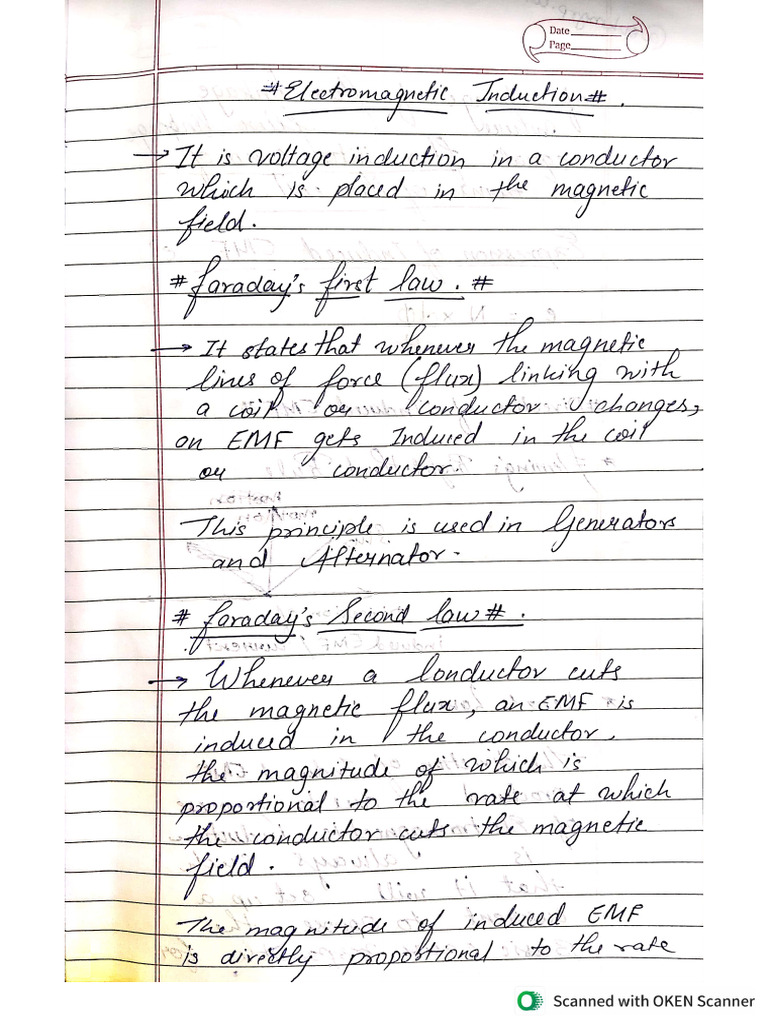 Date
Page
# Electromagnetic Induction # .
→ It is voltage induction in a conductor
which is placed in the magnetic
field.
# Faraday's first law. #
→ It states that whenever the magnetic
lines of force (flux) linking with
a coil or conductor changes,
an EMF gets Induced in the coil
or conductor.
This principle is used in Generators
and Alternator.
# Faraday's Second law # .
→ Whenever a Conductor cuts
the magnetic flux, an EMF is
induced in the conductor.
the magnitude of which is
proportional to the rate at which
the conductor cuts the magnetic
field.
The magnitude of induced EMF
is directly proportional to the rate
Scanned with OKEN Scanner